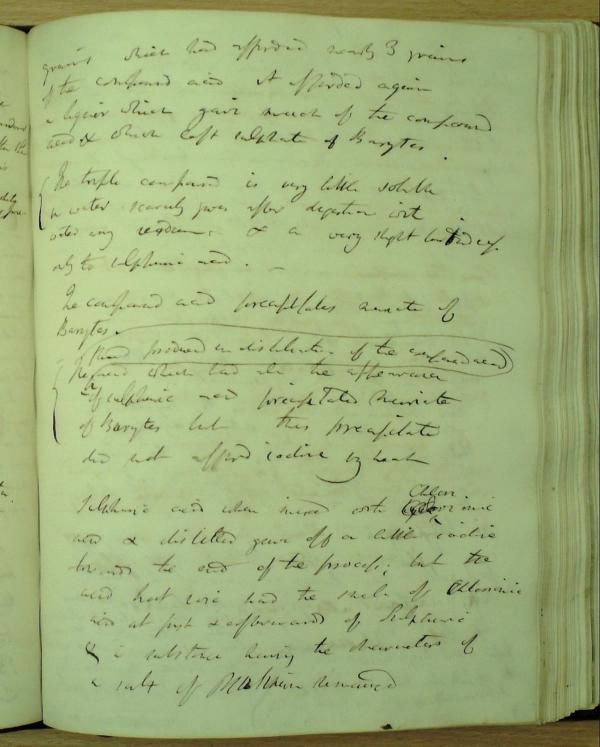 grains which had afforded nearly 3 grains
of the compound acid it afforded again
a liquor which gave much of the compound
acid & which left sulphate of Barytes.
The triple compound is very little soluble
in water scarcely gives after digestion with
water any & a very slight
only to sulphuric acid. —
The compound acid precipitates muriate of
Barytes.
fluid produced in distillation of the compound acid
The fluid which had all the appearance
of sulphuric acid precipitated Muriate
of Barytes but this precipitate
did not afford iodine by heat
Chlori
Sulphuric acid when mixed with
acid & distilled gave off a little iodine
towards the end of the process; but the
acid that rose had the smell of Chlorionic
acid at first & afterwards of Sulphuric
& a substance having the characters of
a salt of remained